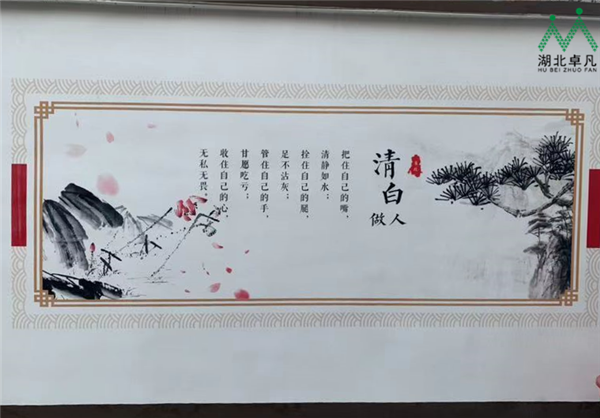 湖北卓凡
HU BEI ZHUO FAN
清白
做人
把住自己的嘴，
清静如水；
拴住自己的腿，
足不沾灰；
管住自己的手，
甘愿吃亏；
收住自己的心，
无私无畏。